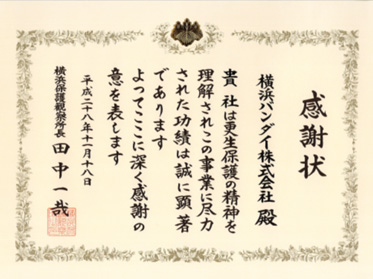 感謝状
横浜バンダイ株式会社 殿
貴 社は更生保護の精神を
理解されこの事業に尽力
された功績は誠に顕著
であります
よってここに深く感謝の
意を表します
平成二十八年十一月十八日
横浜保護観察所長 田中一哉